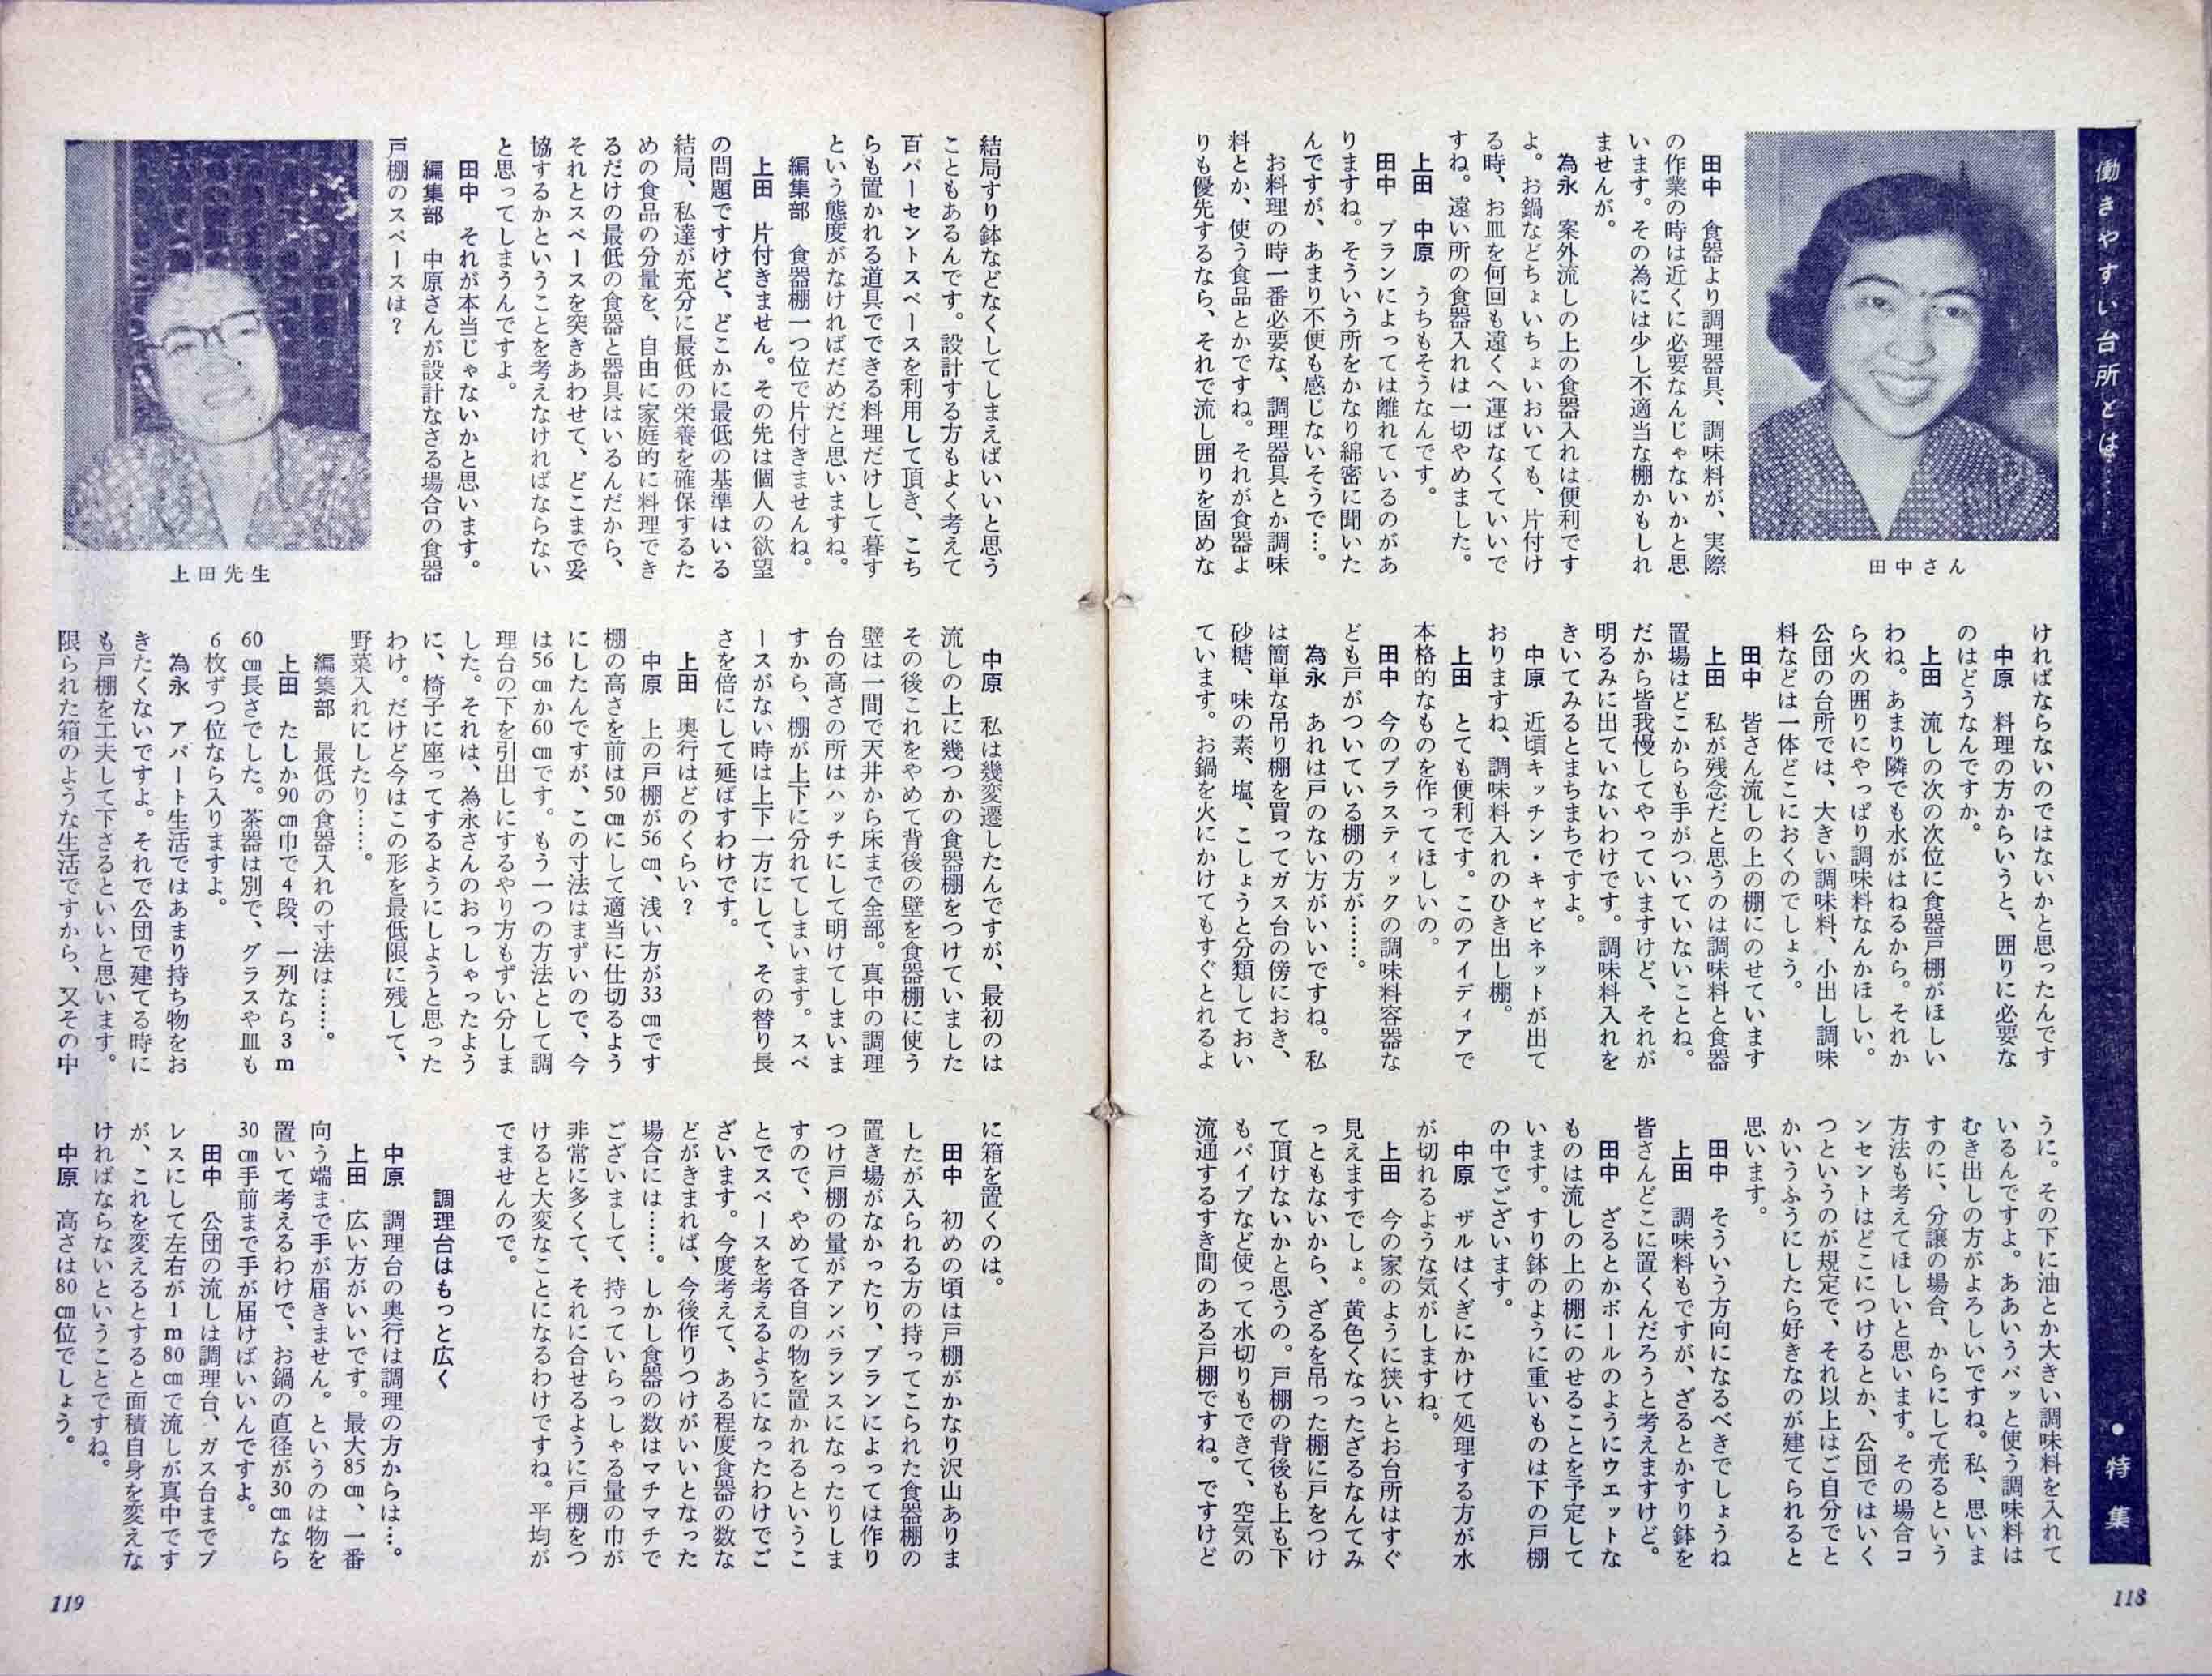 働きやすい台所とは……
●特集
田中さん
田中　食器より調理器具、調味料が、実際
の作業の時は近くに必要なんじゃないかと思
います。その為には少し不適当な棚かもしれ
ませんが。
為永　案外流しの上の食器入れは便利です
よ。お鍋などちょいちょいおいても、片付け
る時、お皿を何回も遠くへ運ばなくていいで
すね。遠い所の食器入れは一切やめました。
上田　中原　うちもそうなんです。
田中　プランによっては離れているのがあ
りますね。そういう所をかなり綿密に聞いた
んですが、あまり不便も感じないそうで…。
お料理の時一番必要な、調理器具とか調味
料とか、使う食品とかですね。それが食器よ
りも優先するなら、それで流し囲りを固めな
ければならないのではないかと思ったんです
中原　料理の方からいうと、囲りに必要な
のはどうなんですか。
上田　流しの次の次位に食器戸棚がほしい
わね。あまり隣でも水がはねるから。それか
ら火の囲りにやっぱり調味料なんかほしい。
公団の台所では、大きい調味料、小出し調味
料などは一体どこにおくのでしょう。
田中　皆さん流しの上の棚にのせています
上田　私が残念だと思うのは調味料と食器
置場はどこからも手がついていないことね。
だから皆我慢してやっていますけど、それが
明るみに出ていないわけです。調味料入れを
きいてみるとまちまちですよ。
中原　近頃キッチン・キャビネットが出て
おりますね、調味料入れのひき出し棚。
上田　とても便利です。このアイディアで
本格的なものを作ってほしいの。
田中　今のプラスティックの調味料容器な
ども戸がついている棚の方が……。
為永　あれは戸のない方がいいですね。私
は簡単な吊り棚を買ってガス台の傍におき、
砂糖、味の素、塩、こしょうと分類しておい
ています。お鍋を火にかけてもすぐとれるよ
うに。その下に油とか大きい調味料を入れて
いるんですよ。ああいうパッと使う調味料は
むき出しの方がよろしいですね。私、思いま
すのに、分譲の場合、からにして売るという
方法も考えてほしいと思います。その場合コ
ンセントはどこにつけるとか、公団ではいく
つというのが規定で、それ以上はご自分でと
かいうふうにしたら好きなのが建てられると
思います。
田中　そういう方向になるべきでしょうね
上田　調味料もですが、ざるとかすり鉢を
皆さんどこに置くんだろうと考えますけど。
田中　ざるとかボールのようにウエットな
ものは流しの上の棚にのせることを予定して
います。すり鉢のように重いものは下の戸棚
の中でございます。
中原　ザルはくぎにかけて処理する方が水
が切れるような気がしますね。
上田　今の家のように狭いとお台所はすぐ
見えますでしょ。黄色くなったざるなんてみ
っともないから、ざるを吊った棚に戸をつけ
て頂けないかと思うの。戸棚の背後も上も下
もパイプなど使って水切りもできて、空気の
流通するすき間のある戸棚ですね。ですけど
118
結局すり鉢などなくしてしまえばいいと思う
こともあるんです。設計する方もよく考えて
百パーセントスペースを利用して頂き、こち
らも置かれる道具でできる料理だけして暮す
という態度がなければだめだと思いますね。
編集部　食器棚一つ位で片付きませんね。
上田　片付きません。その先は個人の欲望
の問題ですけど、どこかに最低の基準はいる
結局、私達が充分に最低の栄養を確保するた
めの食品の分量を、自由に家庭的に料理でき
るだけの最低の食器と器具はいるんだから、
それとスペースを突きあわせて、どこまで妥
協するかということを考えなければならない
と思ってしまうんですよ。
田中　それが本当じゃないかと思います。
編集部　中原さんが設計なさる場合の食器
戸棚のスペースは？
上田先生
中原　私は幾変遷したんですが、最初のは
流しの上に幾つかの食器棚をつけていました
その後これをやめて背後の壁を食器棚に使う
壁は一間で天井から床まで全部。真中の調理
台の高さの所はハッチにして明けてしまいま
すから、棚が上下に分れてしまいます。スペ
ースがない時は上下一方にして、その替り長
さを倍にして延ばすわけです。
上田　奥行はどのくらい？
中原　上の戸棚が56㎝、浅い方が33㎝です
棚の高さを前は50㎝にして適当に仕切るよう
にしたんですが、この寸法はまずいので、今
は56㎝か60㎝です。もう一つの方法として調
理台の下を引出しにするやり方もずい分しま
した。それは、為永さんのおっしゃったよう
に、椅子に座ってするようにしようと思った
わけ。だけど今はこの形を最低限に残して、
野菜入れにしたり……。
編集部　最低の食器入れの寸法は……。
上田　たしか90㎝巾で４段、一列なら３ｍ
60㎝長さでした。茶器は別で、グラスや皿も
６枚ずつ位なら入りますよ。
為永　アパート生活ではあまり持ち物をお
きたくないですよ。それで公団で建てる時に
も戸棚を工夫して下さるといいと思います。
限られた箱のような生活ですから、又その中
に箱を置くのは。
田中　初めの頃は戸棚がかなり沢山ありま
したが入られる方の持ってこられた食器棚の
置き場がなかったり、プランによっては作り
つけ戸棚の量がアンバランスになったりしま
すので、やめて各自の物を置かれるというこ
とでスペースを考えるようになったわけでご
ざいます。今度考えて、ある程度食器の数な
どがきまれば、今後作りつけがいいとなった
場合には……。しかし食器の数はマチマチで
ございまして、持っていらっしゃる量の巾が
非常に多くて、それに合せるように戸棚をつ
けると大変なことになるわけですね。平均が
でませんので。
調理台はもっと広く
中原　調理台の奥行は調理の方からは…。
上田　広い方がいいです。最大85㎝、一番
向う端まで手が届きません。というのは物を
置いて考えるわけで、お鍋の直径が30㎝なら
30㎝手前まで手が届けばいいんですよ。
田中　公団の流しは調理台、ガス台までプ
レスにして左右が１ｍ80㎝で流しが真中です
が、これを変えるとすると面積自身を変えな
ければならないということですね。
中原　高さは80㎝位でしょう。
119